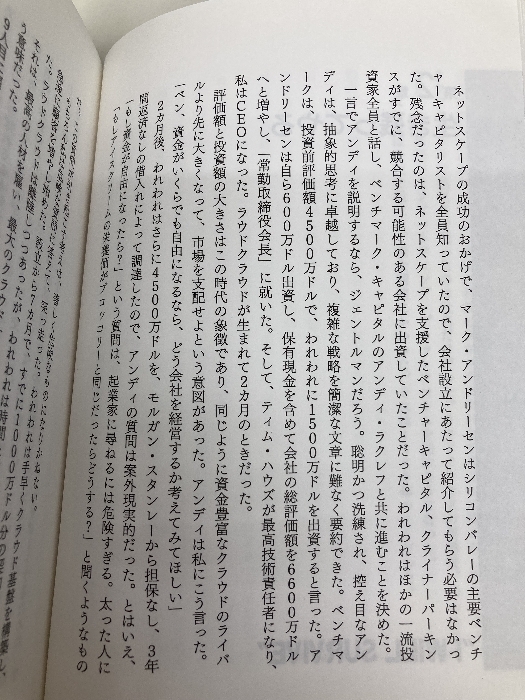 ネットスケープの成功のおかげで、マーク・アンドリーセンはシリコンバレーの主要ベンチ
ャーキャピタリストを全員知っていたので、会社設立にあたって紹介してもらう必要はなかっ
た。残念だったのは、ネットスケープを支援したベンチャーキャピタル、クライナーパーキン
スがすでに、競合する可能性のある会社に出資していたことだった。われわれはほかの一流投
資家全員と話し、ベンチマーク・キャピタルのアンディ・ラクレフと共に進むことを決めた。
一言でアンディを説明するなら、ジェントルマンだろう。聡明かつ洗練され、控え目なアン
ディは、抽象的思考に卓越しており、複雑な戦略を簡潔な文章に難なく要約できた。ベンチマ
ークは、投資前評価額4500万ドルで、われわれに1500万ドルを出資すると言った。ア
ンドリーセンは自ら600万ドル出資し、保有現金を含めて会社の総評価額を6600万ドル
へと増やし、「常勤取締役会長」に就いた。そして、ティム・ハウズが最高技術責任者になり、
私はCEOになった。ラウドクラウドが生まれて2カ月のときだった。
評価額と投資額の大きさはこの時代の象徴であり、同じように資金豊富なクラウドのライバ
ルより先に大きくなって、市場を支配せよという意図があった。アンディは私にこう言った。
「ベン、資金がいくらでも自由になるなら、どう会社を経営するか考えてみてほしい」
2カ月後、われわれはさらに4500万ドルを、モルガン・スタンレーから担保なし、3年
間返済なしの借入れによって調達したので、アンディの質問は案外現実的だった。とはいえ、
「もし資金が自由になったら?」という質問は、起業家に尋ねるには危険すぎる。太った人に
「もしアイスクリームの栄養価がブロッコリーと同じだったらどうする?」と聞くようなもの
われわれは手早くクラウド基盤を構築し、
た。ラウドクラウドは設立から7カ月で、すでに1000万ドル分の契
それは、最高の人材を雇い、最大のクラウド
う意味だった。